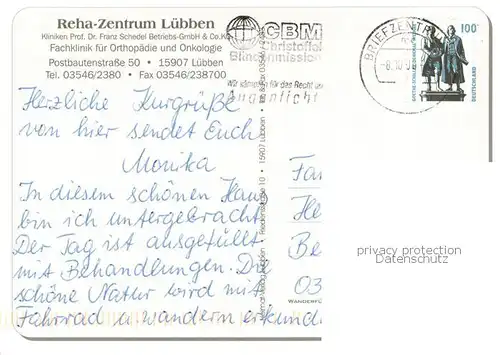 Reha-Zentrum Lübben
Kliniken Prof. Dr. Franz Schedel Betriebs-GmbH & Co.KG
Fachklinik für Orthopädie und Onkologie
Postbautenstraße 50 • 15907 Lübben
Tel. 03546/2380 • Fax 03546/238700
CBM
Christoffel
Blindenmission
Wir kämpfen für das Recht auf
Augenlicht
BRIEFZENTRUM
-8.10.0
100
DEUTSCHLAND
Herzliche Kurgrüße
von hier sendet Euch
Monika
In diesem schönen Haus
bin ich untergebracht
Der Tag ist ausgefüllt
mit Behandlungen. Die
schöne Natur wird mit
Fahrrad u wandern erkund
15907 Lübben
Fa
He
Be
03
privacy protection
Datenschutz